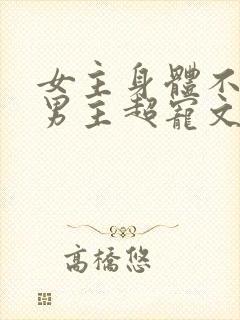 女主身體不
男主超寵文
高橋悠